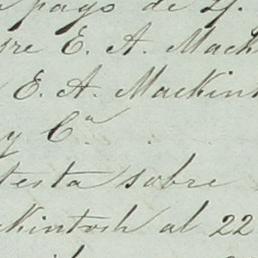 pago de L.
re E. A. Mack
E. A. Mackint
y Ca
testa sobre
ckintosh al 22